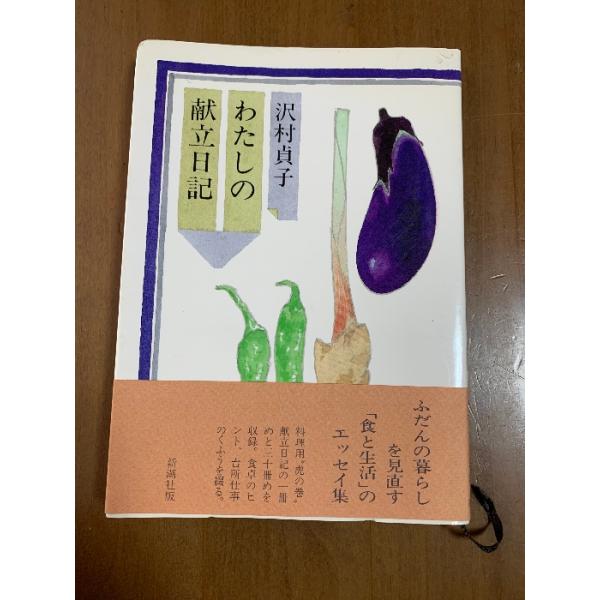 沢村貞子
わたしの
献立日記
ふだんの暮らし
を見直す
「食と生活」の
エッセイ集
料理用〝虎の巻〟
献立日記の一冊
めと三十冊めを
収録。食卓のヒ
ント、台所仕事
のくふうを綴る。
新潮社版